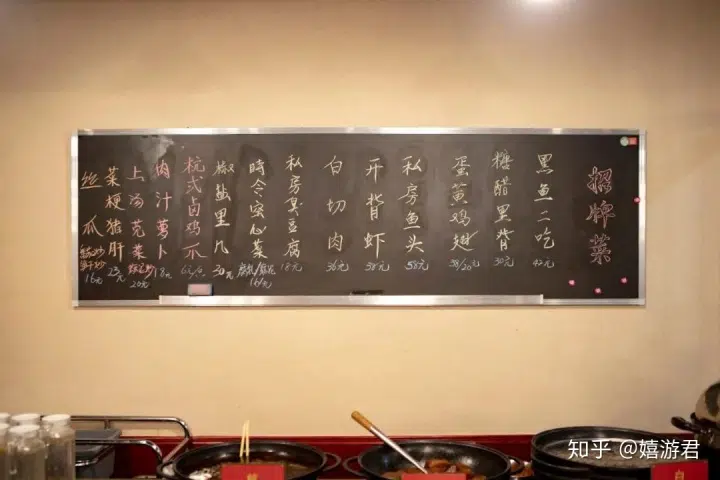 招牌菜
黑鱼二吃
42元
糖醋里脊
30元
蛋黄鸡翅
38/20元
私房鱼头
58元
开背虾
58元
白切肉
36元
私房臭豆腐
18元
時令空心菜
腐乳/蒜泥
16/元
椒盐里几
30元
杭式卤鸡爪
6元/只
肉汁萝卜
18元
上汤苋菜
20元
菜梗猪肝
23元
丝瓜
16元
知乎 @嬉游君